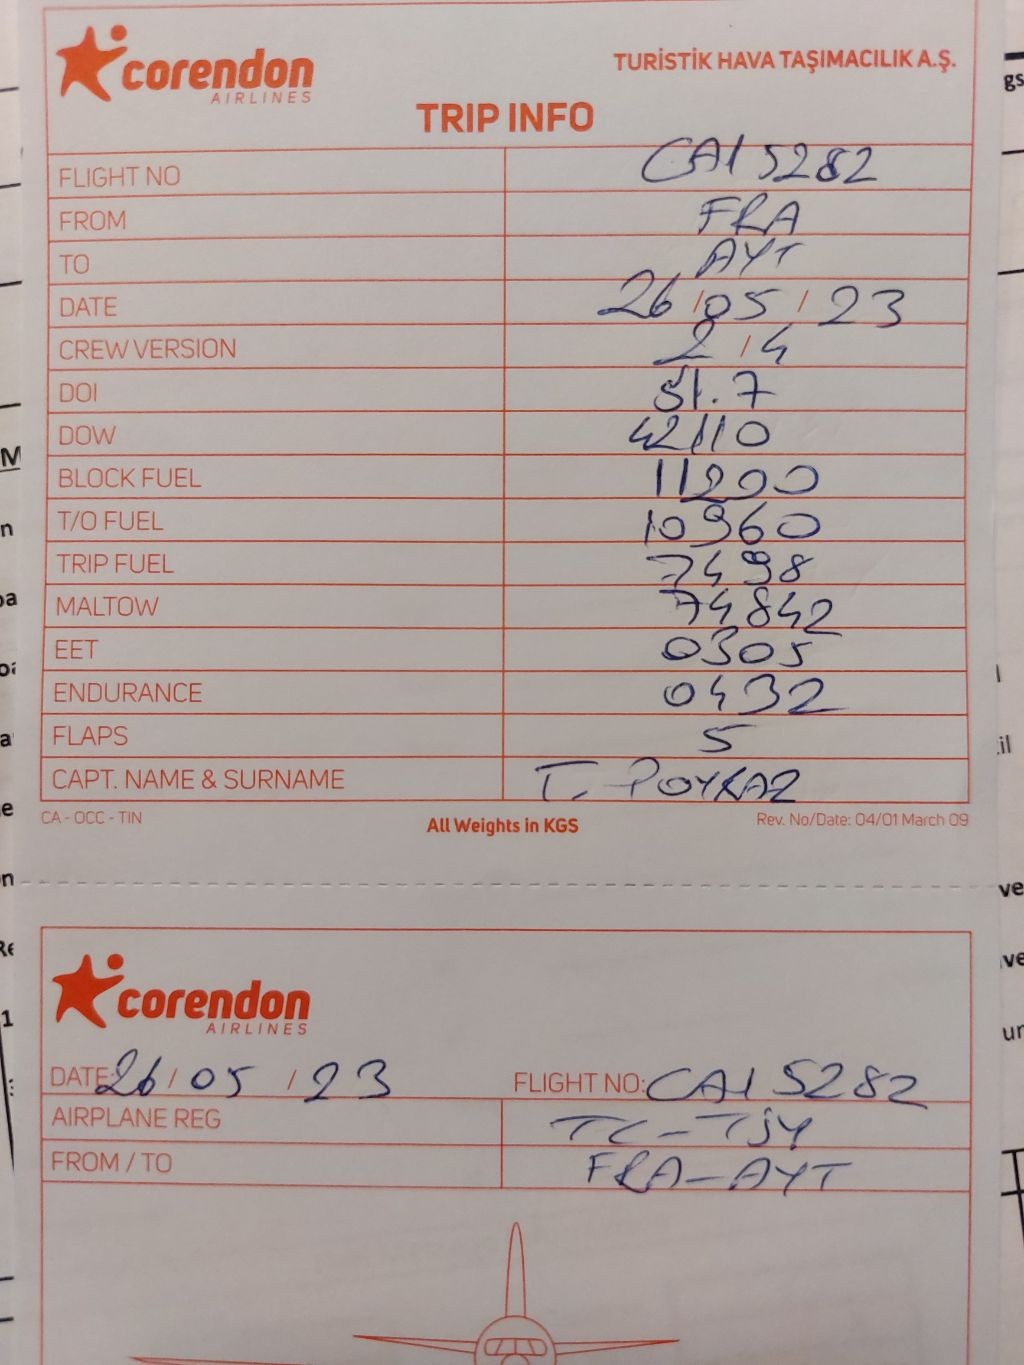 corendon
AIRLINES
TURİSTİK HAVA TAŞIMACILIK A.Ş.
TRIP INFO
FLIGHT NO CAI 5282
FROM FRA
TO AYT
DATE 26/05/23
CREW VERSION 2/4
DOI 51.7
DOW 42110
BLOCK FUEL 11200
T/O FUEL 10960
TRIP FUEL 7498
MALTOW 74842
EET 0305
ENDURANCE 0432
FLAPS 5
CAPT. NAME & SURNAME T. POYRAZ
CA - OCC - TIN All Weights in KGS Rev. No/Date: 04/01 March 09
corendon
AIRLINES
DATE: 26/05/23 FLIGHT NO: CAI 5282
AIRPLANE REG TC-TJY
FROM / TO FRA-AYT